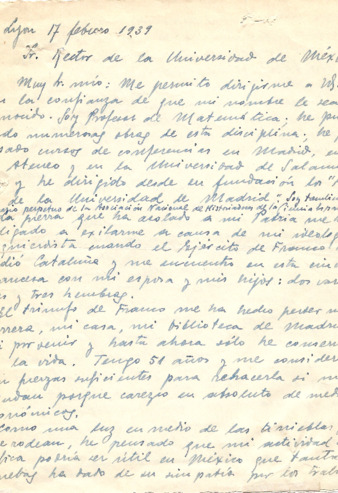 Lyon 17 febrero 1939
Sr. Rector de la Universidad de Méxi
Muy Sr. mío: Me permito dirigirme a Vd
la confianza de que mi nombre le sea
nocido. Soy Profesor de Matemática; he pu
do numerosas obras de esta disciplina; he
sado cursos de conferencias en Madrid, en
Ateneo y en la Universidad de Salam
y he dirigido desde su fundación los "
de la Universidad de Madrid; Soy
de la Asociación Nacional de Historiadores de la Ciencia
La guerra que ha asolado a mi Patria me
ligado a exilarme a causa de mi ideolog
izquierdista cuando el Ejército de Franco
dió Cataluña y me encuentro en esta ciu
ancesa con mi esposa y mis hijos: dos var
s y tres hembras.
El triunfo de Franco me ha hecho perder
rrera, mi casa, mi biblioteca de Madri
i porvenir y hasta ahora sólo he conser
la vida. Tengo 51 años y me consider
n fuerzas suficientes para rehacerla si m
udan porque carezco en absoluto de med
onómicos.
Como una luz en medio de las tinieblas
e rodean, he pensado que mi actividad
fica podría ser útil en México que tanta
uebas ha dado de su simpatía por los trab